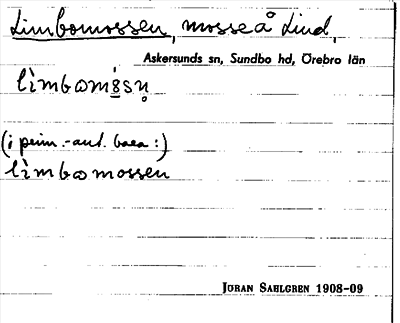 Limbomossen, mosse å Lind,
Askersunds sn, Sundbo hd, Örebro län
lìmbωmósn̥
(i prim.-aut. bara:)
lìmbωmossen
JÖRAN SAHLGREN 1908-09